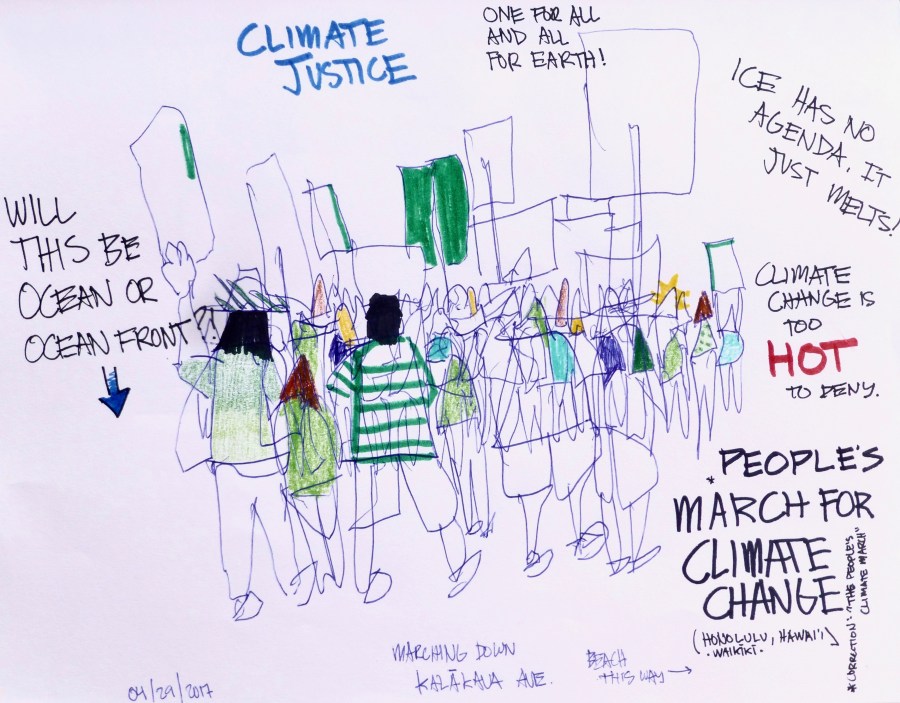 CLIMATE
JUSTICE
ONE FOR ALL
AND ALL
FOR EARTH!
ICE HAS NO
AGENDA, IT
JUST MELTS!
WILL
THIS BE
OCEAN OR
OCEAN FRONT?!
CLIMATE
CHANGE IS
TOO
HOT
TO DENY.
*PEOPLE'S
MARCH FOR
CLIMATE
CHANGE
(HONOLULU, HAWAI'I)
·WAIKĪKĪ·
*CORRECTION: "THE PEOPLE'S
CLIMATE MARCH"
MARCHING DOWN
KALĀKAUA AVE.
BEACH
THIS WAY →
04/29/2017